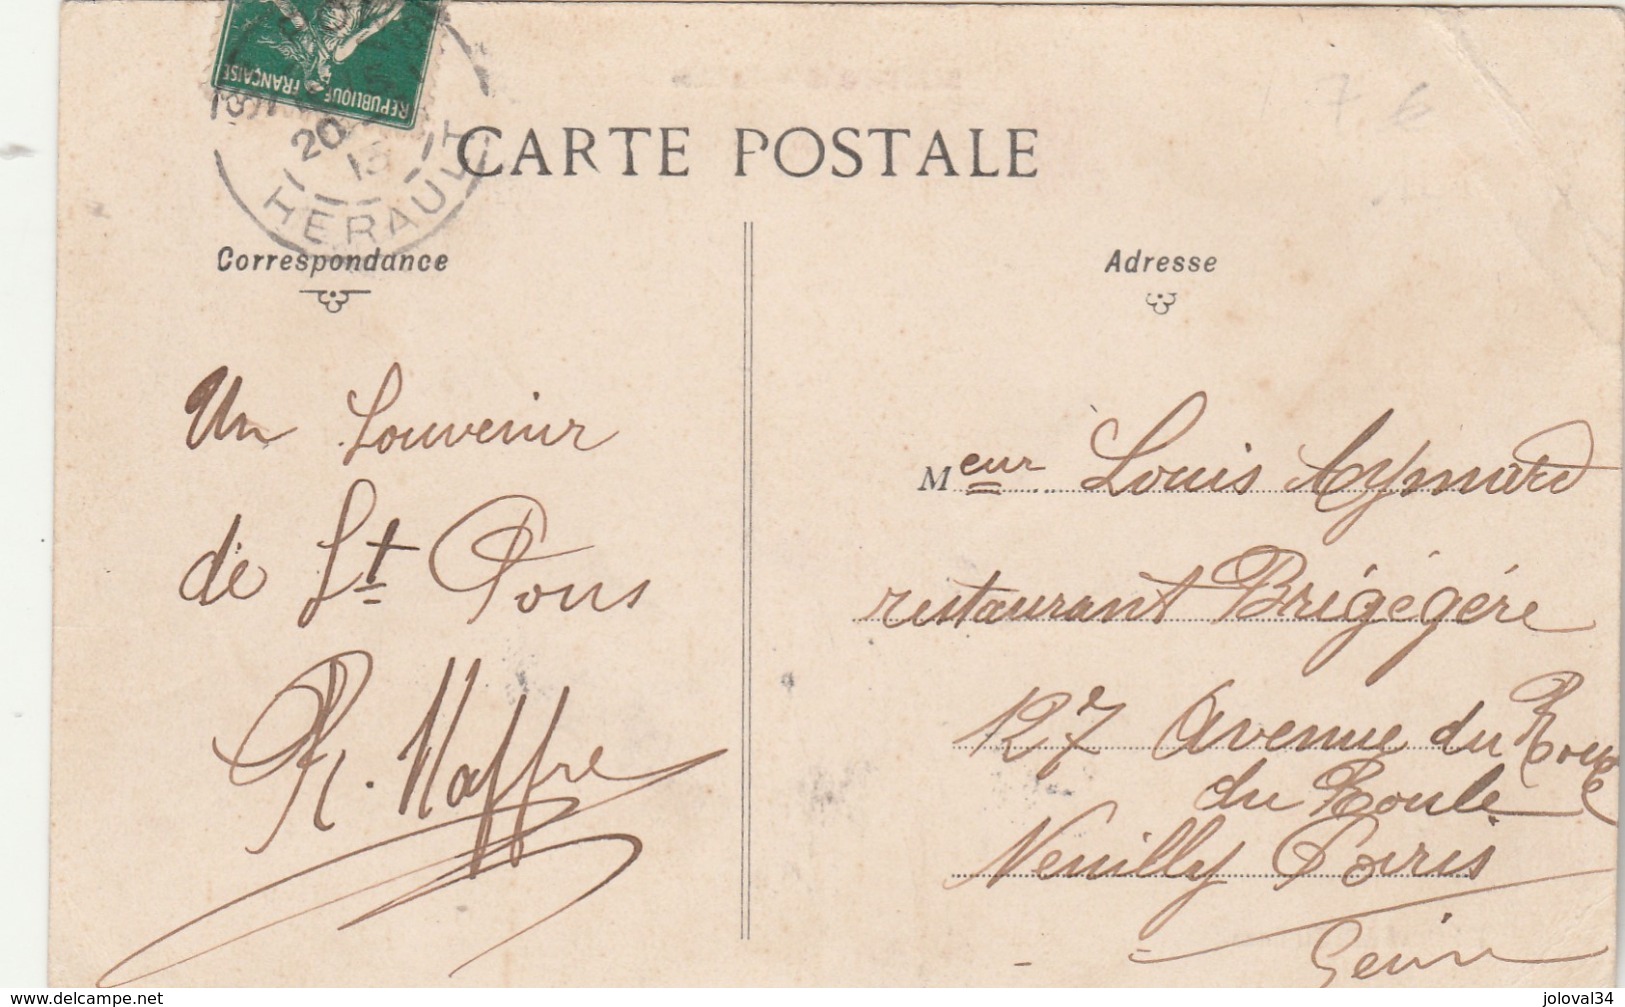 REPUBLIQUE FRANÇAISE
20
13
HERAULT
CARTE POSTALE
Correspondance
Un Souvenir
de St Pons
R. Maffre
Adresse
Meur Louis Aymard
restaurant Brégégére
127 Avenue du Roule
du Roule
Neuilly Paris
Seine
www.delcampe.net
joloval34